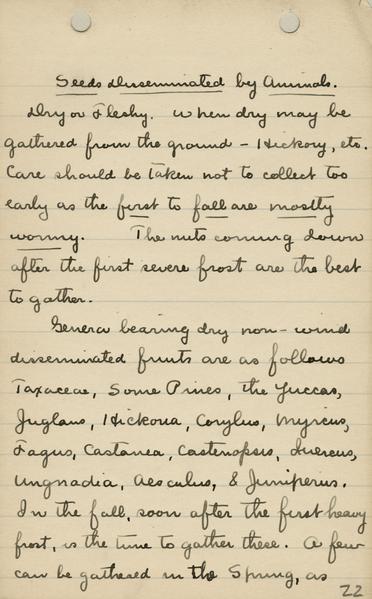 Seeds Disseminated by Animals.
Dry or Fleshy. When dry may be
gathered from the ground - Hickory, etc.
Care should be taken not to collect too
early as the first to fall are mostly
wormy. The nuts coming down
after the first severe frost are the best
to gather.
Genera bearing dry non-wind
disseminated fruits are as follows
Taxaceae, Some Pines, the Yuccas,
Juglans, Hickoria, Corylus, Myricas,
Fagus, Castanea, Castenopsis, Quercus,
Ungnadia, Aesculus, & Juniperus.
In the fall, soon after the first heavy
frost, is the time to gather these. A few
can be gathered in the Spring, as
22